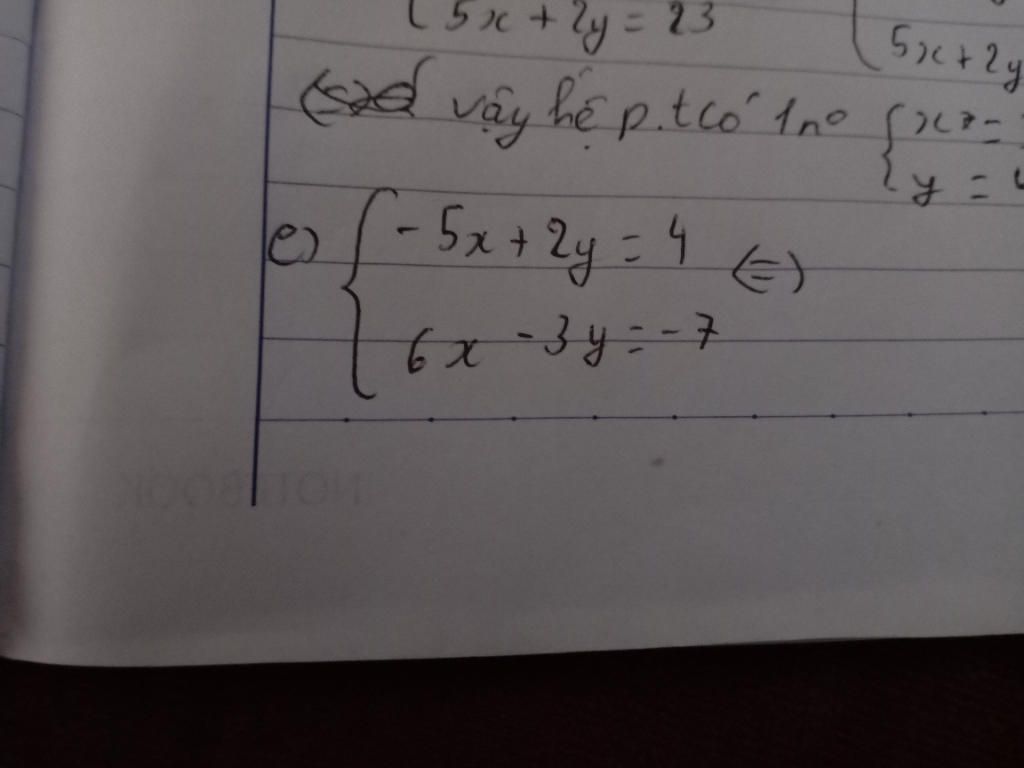 5x + 2y = 23
5x + 2y
vậy hệ p.t có 1 n⁰ { x =
y =
e) { -5x + 2y = 4 (=)
6x - 3y = -7
NOTEBOOK